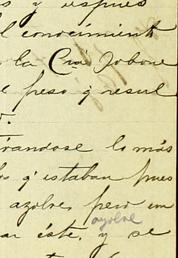 s y espues
el conocimient
la Cia Jobone
e peso q' resul
o.
rándose lo más
s q' estaban pues
azolve, pero un
azolve
ar éste, y se